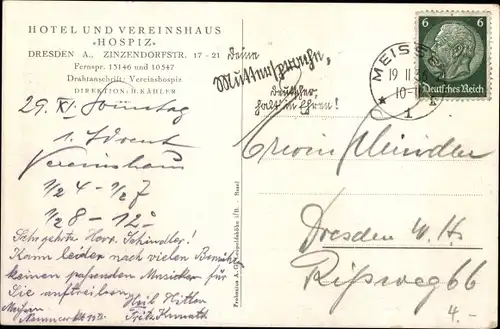 HOTEL UND VEREINSHAUS
»HOSPIZ«
DRESDEN A., ZINZENDORFSTR. 17-21
Fernspr. 15146 und 10547
Drahtanschrift: Vereinshospiz
DIREKTION: H. KÄHLER
29. XI. Sonntag
1. Advent
Vereinshaus
1/2 4 - 1/2 7
1/2 8 - 12
Sehr geehrter Herr Schindler!
Kann leider nach vielen Bemühen
keinen passenden Musiker für
Sie auftreiben
Heil Hitler
Meißen
Fritz Kunath
Deine
Muttersprache,
Deutscher,
halt' in Ehren!
MEISSEN
19 11 36
10-11
1
6 6
Deutsches Reich
Erwin Schindler
Dresden
66
4.-